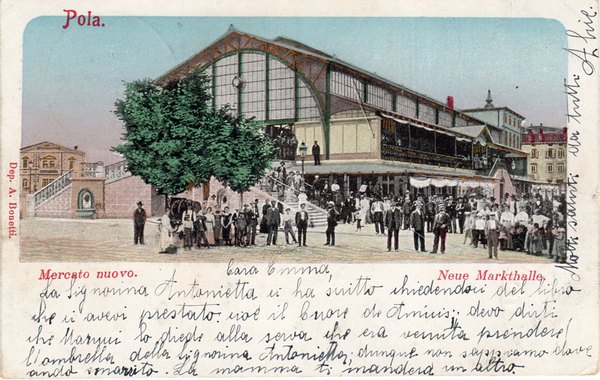 Pola.
Dep. A. Bonetti.
Mercato nuovo.
Neue Markthalle.
Cara Emma,
La Signorina Antonietta ci ha scritto chiedendoci del libro
che ci avevi prestato cioè il Cuore de Amicis; devo dirti
che lo diede alla serva che era venuta prendere
l'ombrella della Signorina Antonietta, dunque non sappiamo dove
ando smarito. La mamma ti manderà un altro
saluti da tutti